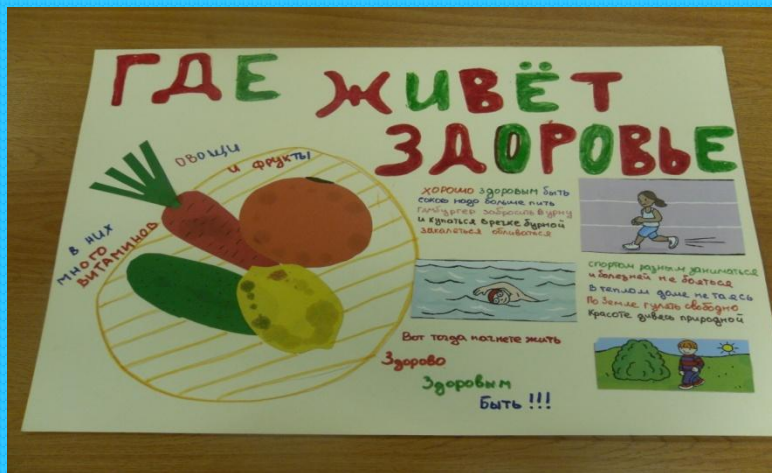 ГДЕ ЖИВЁТ
ЗДОРОВЬЕ
ОВОЩИ
И ФРУКТЫ
В НИХ
МНОГО
ВИТАМИНОВ
ХОРОШО ЗДОРОВЫМ БЫТЬ
СОКОВ НАДО БОЛЬШЕ ПИТЬ
ГАМБУРГЕР ЗАБРОСИТЬ В УРНУ
И КУПАТЬСЯ В РЕЧКЕ БУРНОЙ
ЗАКАЛЯТЬСЯ ОБЛИВАТЬСЯ
СПОРТОМ РАЗНЫМ ЗАНИМАТЬСЯ
И БОЛЕЗНЕЙ НЕ БОЯТЬСЯ
В ТЕПЛОМ ДОМЕ НЕ ТАЯСЬ
ПО ЗЕМЛЕ ГУЛЯТЬ СВОБОДНО
КРАСОТЕ ДИВЯСЬ ПРИРОДНОЙ
ВОТ ТОГДА НАЧНЕТЕ ЖИТЬ
ЗДОРОВО
ЗДОРОВЫМ
БЫТЬ !!!